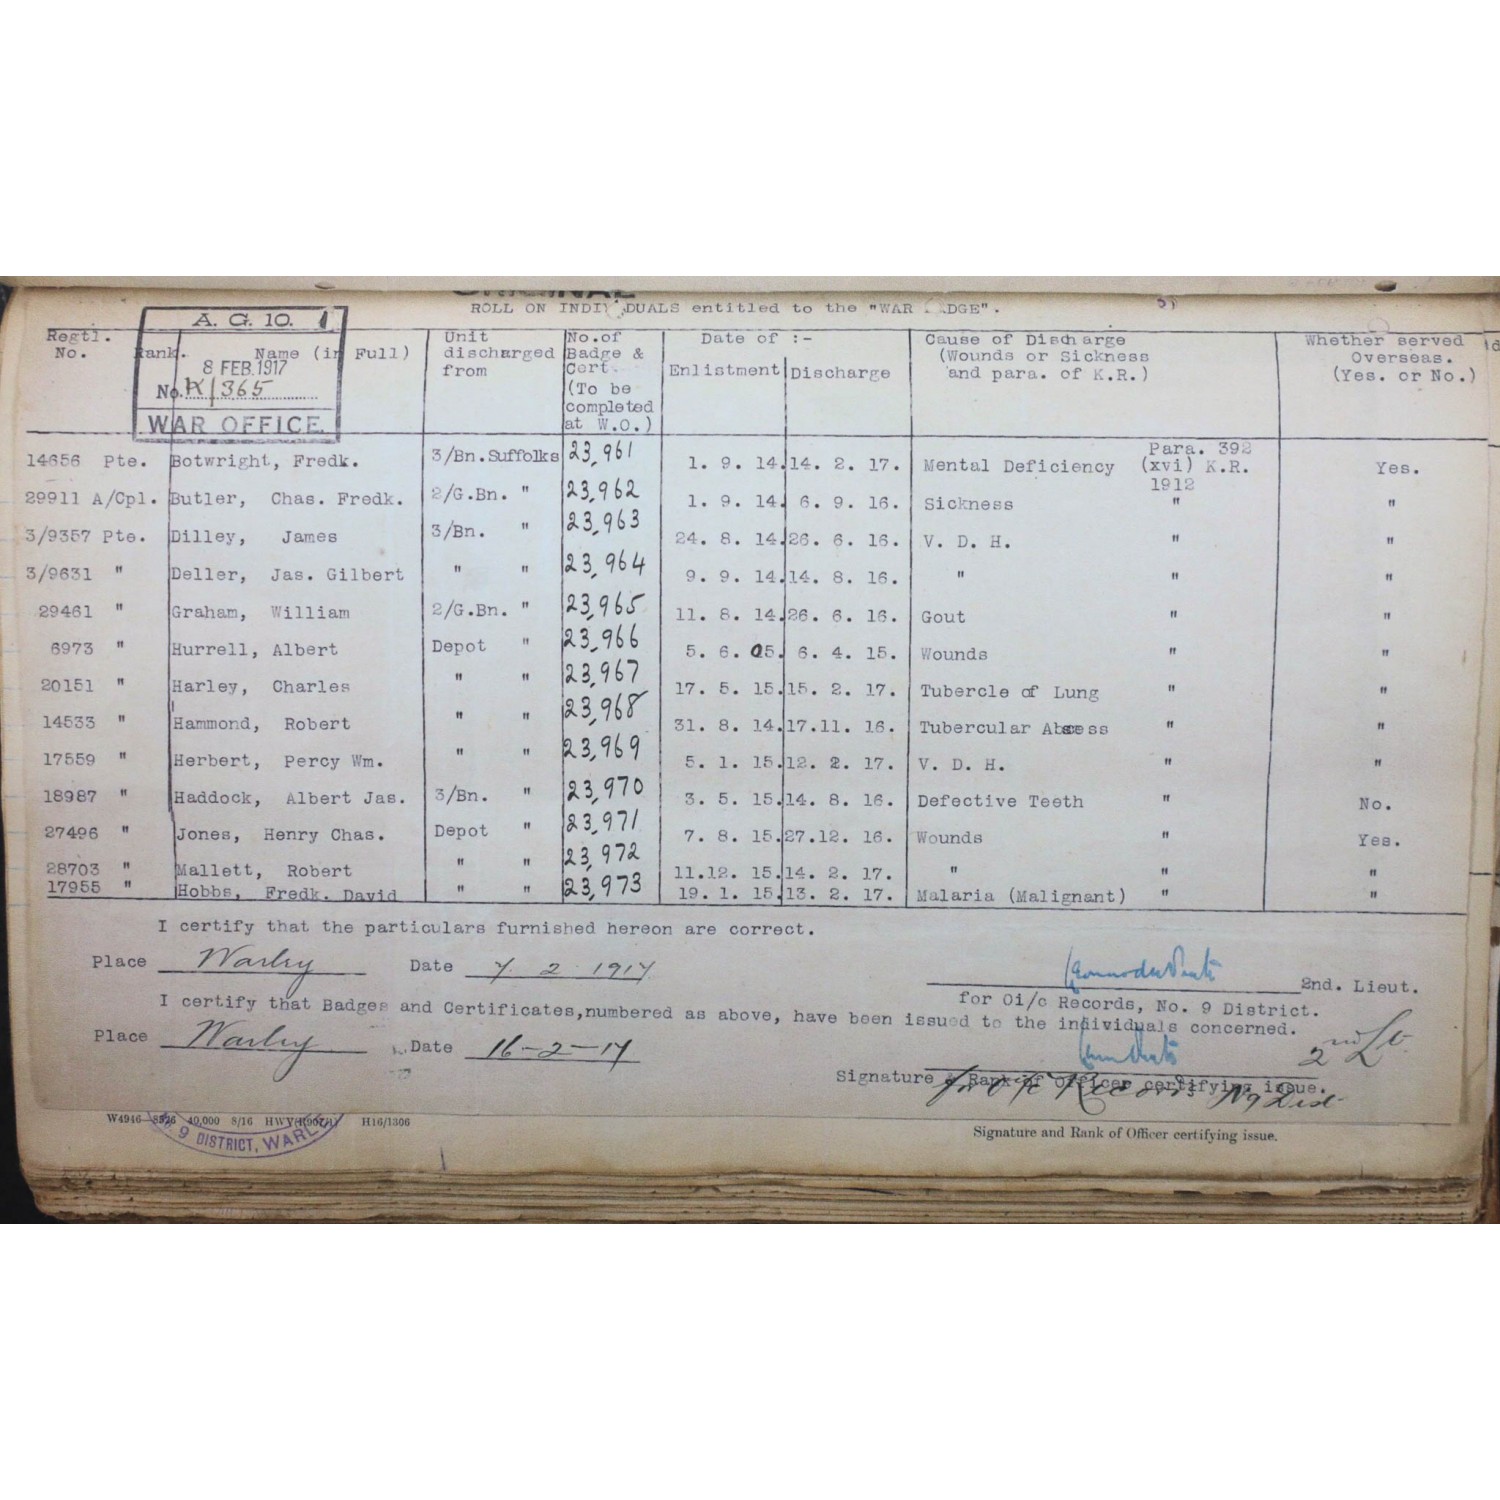 ROLL ON INDI DUALS entitled to the "WAR DGE".
A. G. 10. 1
8 FEB.1917
No. 365
WAR OFFICE.
Regtl. No. Rank. Name (in Full) Unit discharged from No.of Badge & Cert. (To be completed at W.O.) Date of :- Enlistment Discharge Cause of Discharge (Wounds or Sickness and para. of K.R.) Whether served Overseas. (Yes. or No.)
14656 Pte. Botwright, Fredk. 3/Bn.Suffolks 23,961 1. 9. 14. 14. 2. 17. Mental Deficiency Para. 392 (xvi) K.R. 1912 Yes.
29911 A/Cpl. Butler, Chas. Fredk. 2/G.Bn. " 23,962 1. 9. 14. 6. 9. 16. Sickness " "
3/9357 Pte. Dilley, James 3/Bn. " 23,963 24. 8. 14. 26. 6. 16. V. D. H. " "
3/9631 " Deller, Jas. Gilbert " " 23,964 9. 9. 14. 14. 8. 16. " " "
29461 " Graham, William 2/G.Bn. " 23,965 11. 8. 14. 26. 6. 16. Gout " "
6973 " Hurrell, Albert Depot " 23,966 5. 6. 05. 6. 4. 15. Wounds " "
20151 " Harley, Charles " " 23,967 17. 5. 15. 15. 2. 17. Tubercle of Lung " "
14533 " Hammond, Robert " " 23,968 31. 8. 14. 17.11. 16. Tubercular Abscess " "
17559 " Herbert, Percy Wm. " " 23,969 5. 1. 15. 12. 2. 17. V. D. H. " "
18987 " Haddock, Albert Jas. 3/Bn. " 23,970 3. 5. 15. 14. 8. 16. Defective Teeth " No.
27496 " Jones, Henry Chas. Depot " 23,971 7. 8. 15. 27.12. 16. Wounds " Yes.
28703 " Mallett, Robert " " 23,972 11.12. 15. 14. 2. 17. " " "
17955 " Hobbs, Fredk. David " " 23,973 19. 1. 15. 13. 2. 17. Malaria (Malignant) " "
I certify that the particulars furnished hereon are correct.
Place Warley Date 7 2 1917 2nd. Lieut.
for Oi/c Records, No. 9 District.
I certify that Badges and Certificates,numbered as above, have been issued to the individuals concerned.
Place Warley Date 16-2-17 2nd Lt.
Signature & Rank of Officer certifying issue.
for O/c Records No 9 Dist
W4946—8526 40,000 8/16 HWV H16/1306
9 DISTRICT, WARLEY
Signature and Rank of Officer certifying issue.